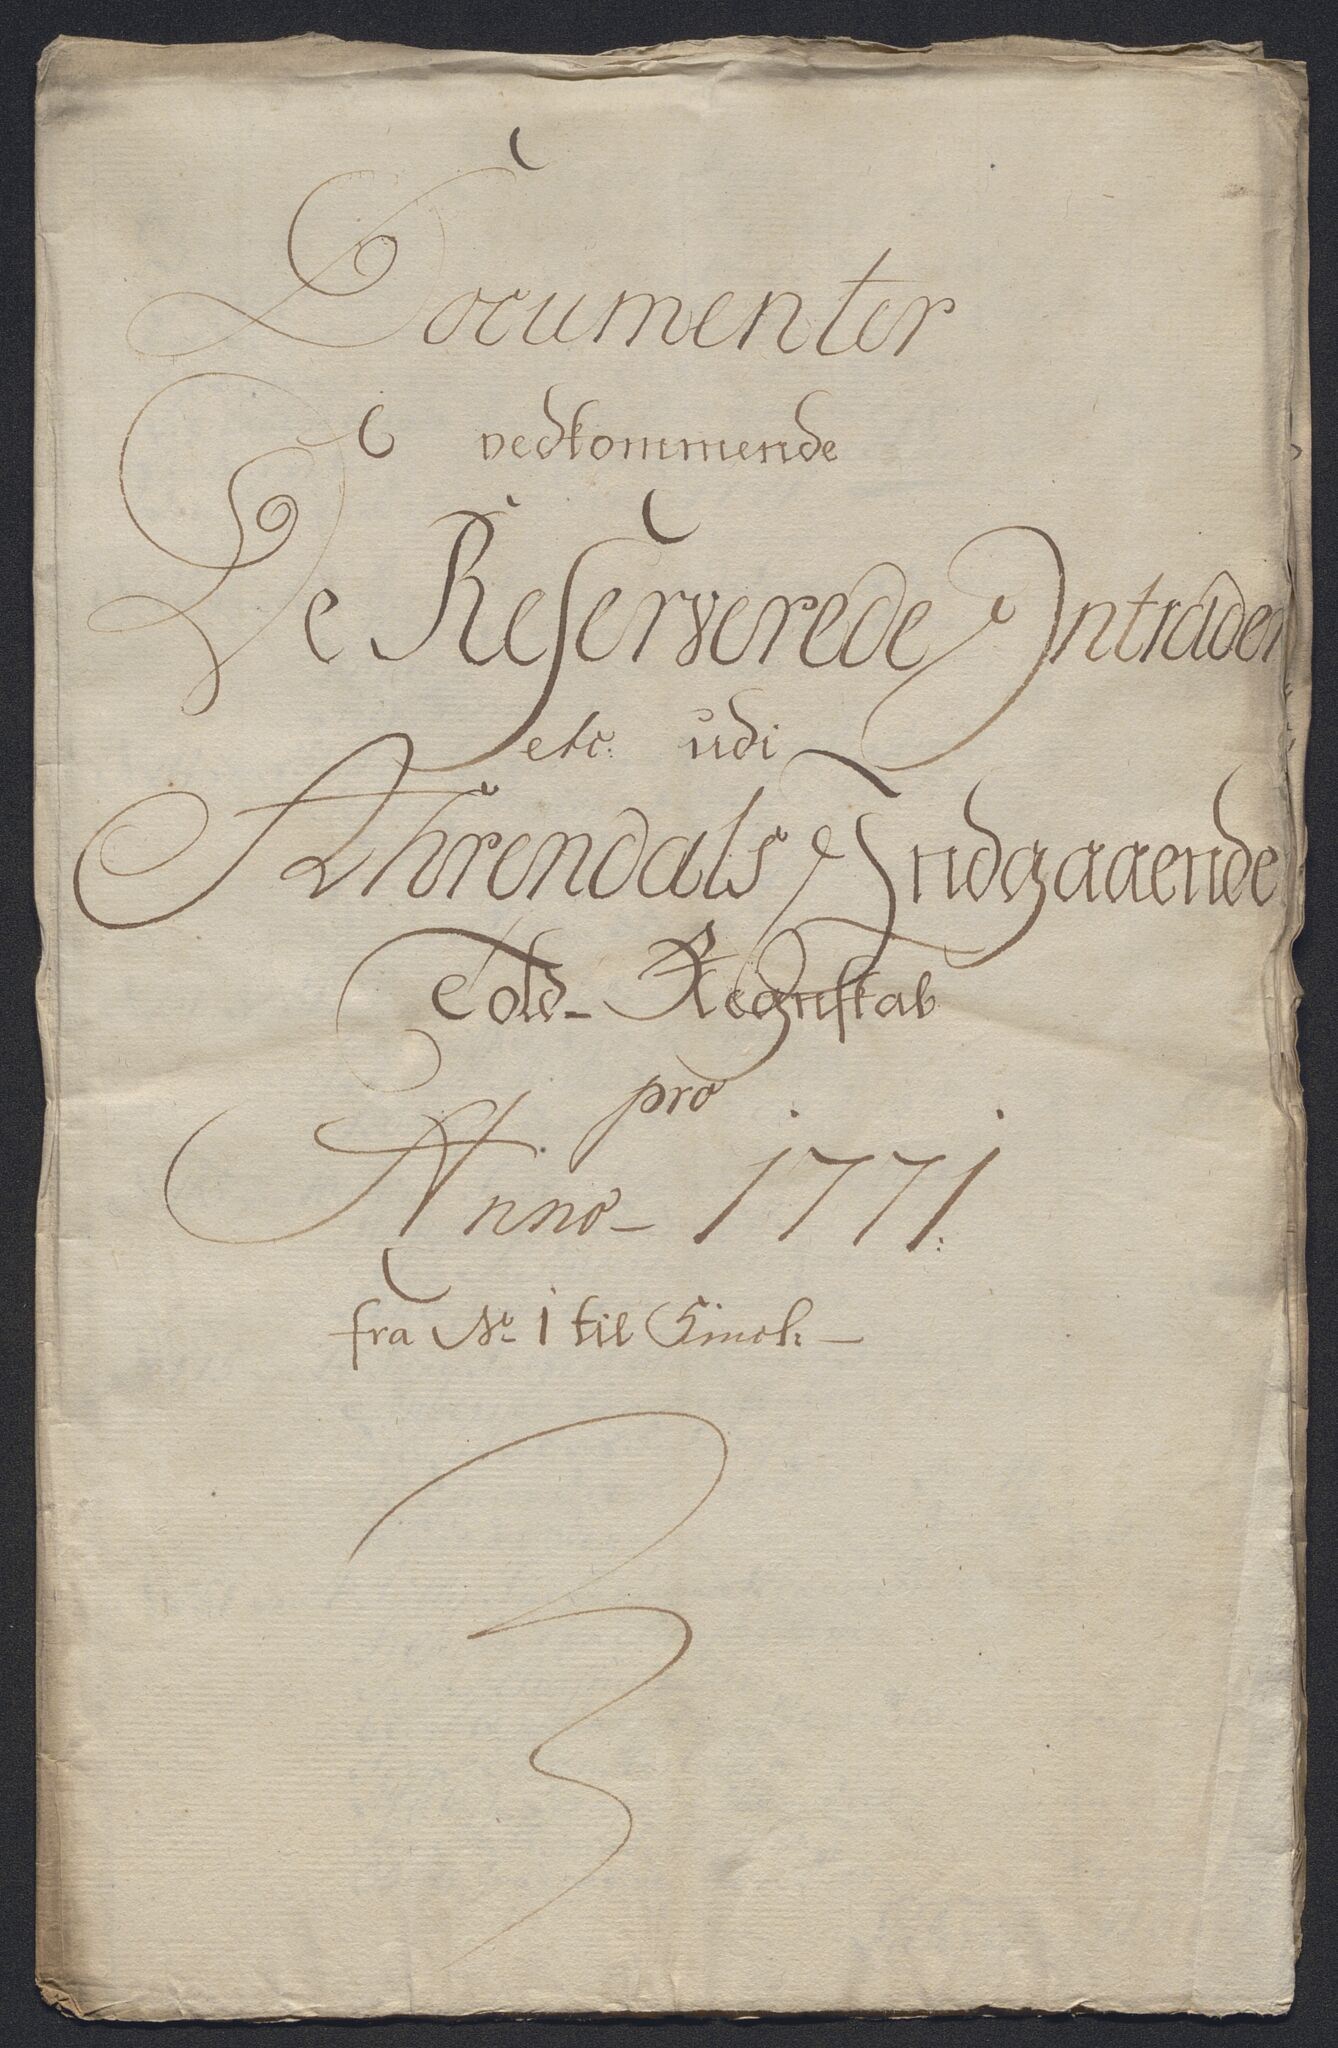 Documenter
vedkommende
De Reserverede Intrader
etc: udi
Ahrendals Indgaaende
Told- Regnskab
pro
Anno- 1771:
fra No 1 til